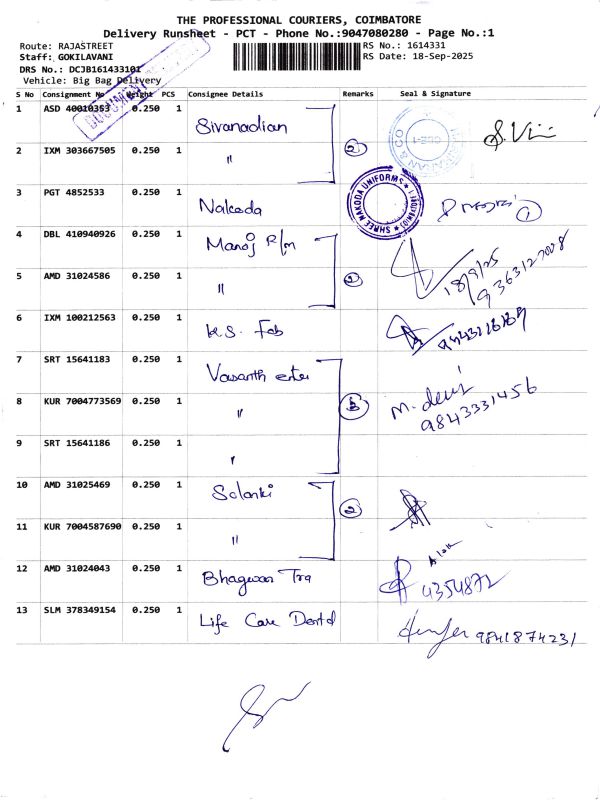 THE PROFESSIONAL COURIERS, COIMBATORE
Delivery Runsheet - PCT - Phone No.:9047080280 - Page No.:1
Route: RAJASTREET
RS No.: 1614331
Staff: GOKILAVANI
RS Date: 18-Sep-2025
DRS No.: DCJB161433101
Vehicle: Big Bag Delivery
DOCUMENT
S No Consignment No Weight PCS Consignee Details Remarks Seal & Signature
1 ASD 40010353 0.250 1 Sivanadian S.Vi
2 IXM 303667505 0.250 1 〃 2
SHREE NAKODA UNIFORMS
3 PGT 4852533 0.250 1 Nakoda 1
4 DBL 410940926 0.250 1 Manoj R/m
5 AMD 31024586 0.250 1 〃 2 18/9/25
9363127008
6 IXM 100212563 0.250 1 K.S. Fab
7 SRT 15641183 0.250 1 Vasanth enter
8 KUR 7004773569 0.250 1 〃 3 M. devi
9843331456
9 SRT 15641186 0.250 1 〃
10 AMD 31025469 0.250 1 Solanki 2
11 KUR 7004587690 0.250 1 〃
12 AMD 31024043 0.250 1 Bhagwan Tra 4354872
13 SLM 378349154 0.250 1 Life Care Dental 9841874231